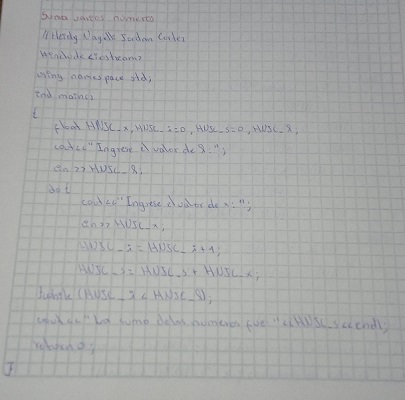 Suma varios numeros
//Heidy Nayelli Jordan Cortes
#include <iostream>
using namespace std;
int main()
{
float HNJC_x, HNJC_i=0, HNJC_s=0, HNJC_8;
cout<<"Ingrese el valor de 8:";
cin>> HNJC_8;
do {
cout<<"Ingrese el valor de x:";
cin>> HNJC_x;
HNJC_i = HNJC_i + 1;
HNJC_s = HNJC_s + HNJC_x;
}while (HNJC_i < HNJC_8);
cout<<"La suma de los numeros fue "<<HNJC_s<<endl;
return 0;
}